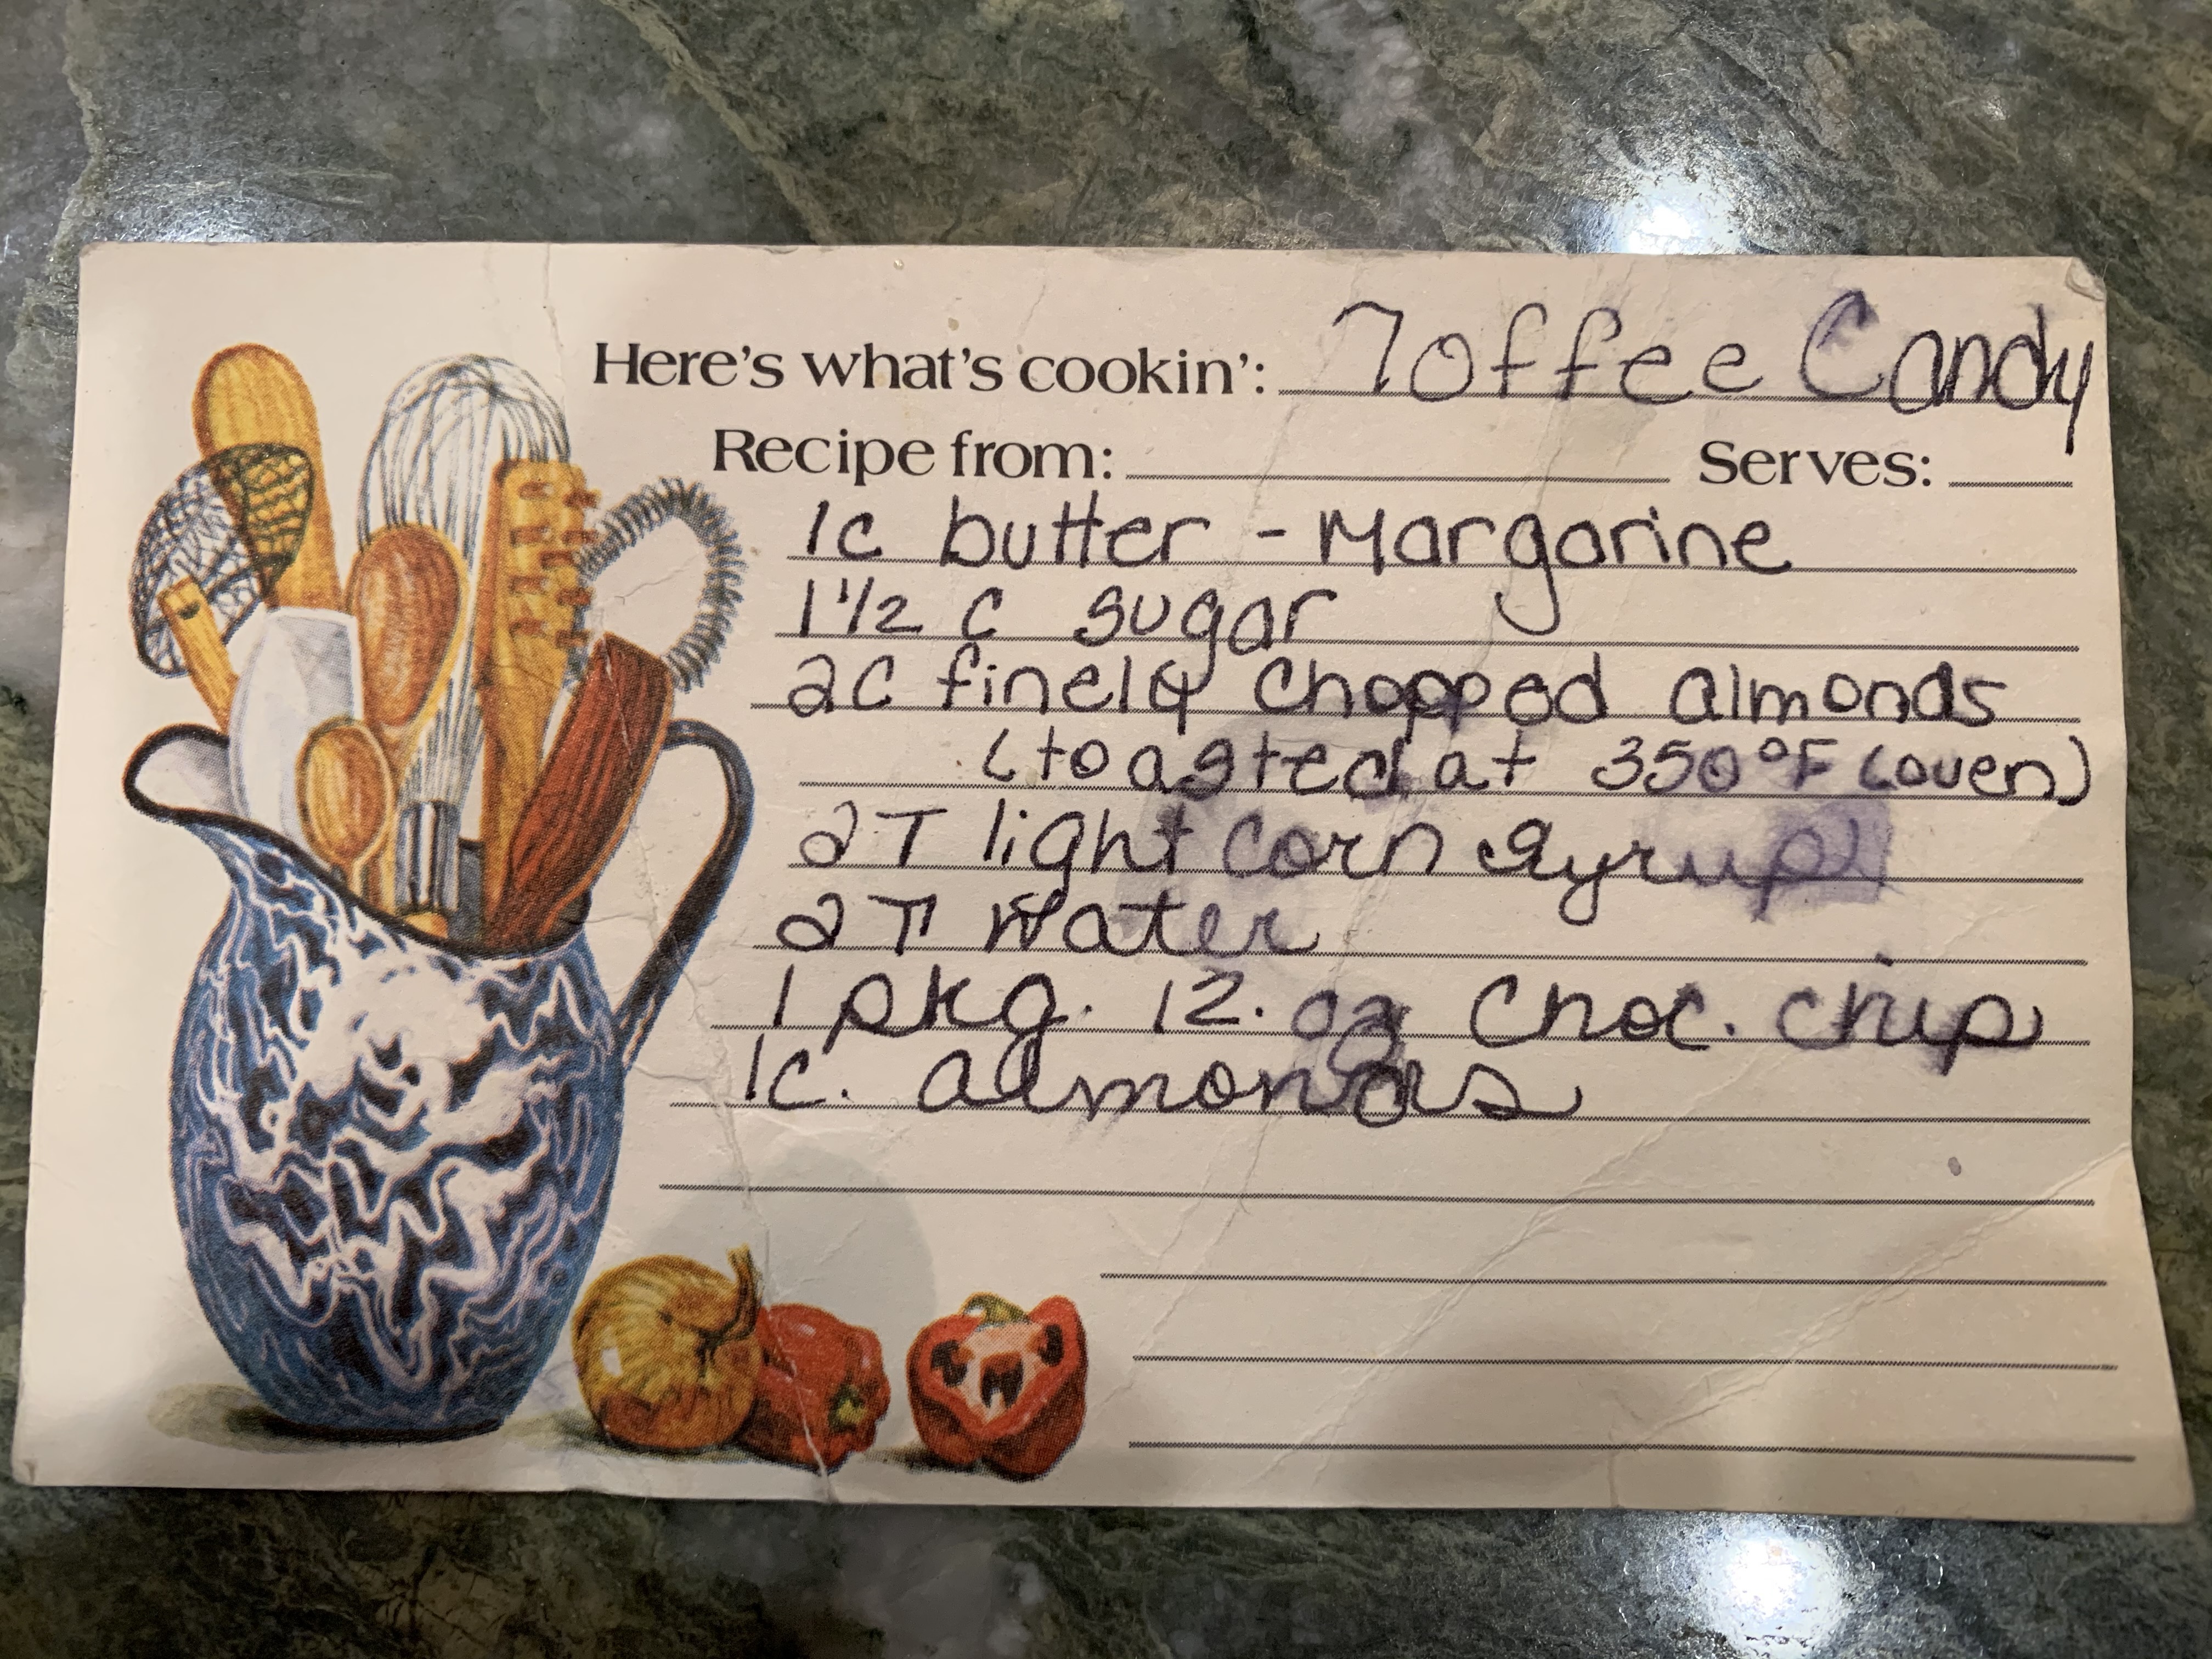 Here's what's cookin': Toffee Candy
Recipe from: Serves:
1c butter - Margarine
1 1/2 c sugar
2c finely chopped almonds
(toasted at 350°F (oven)
2T light corn syrup
2T water
1 pkg. 12. oz choc. chip
1c. almonds